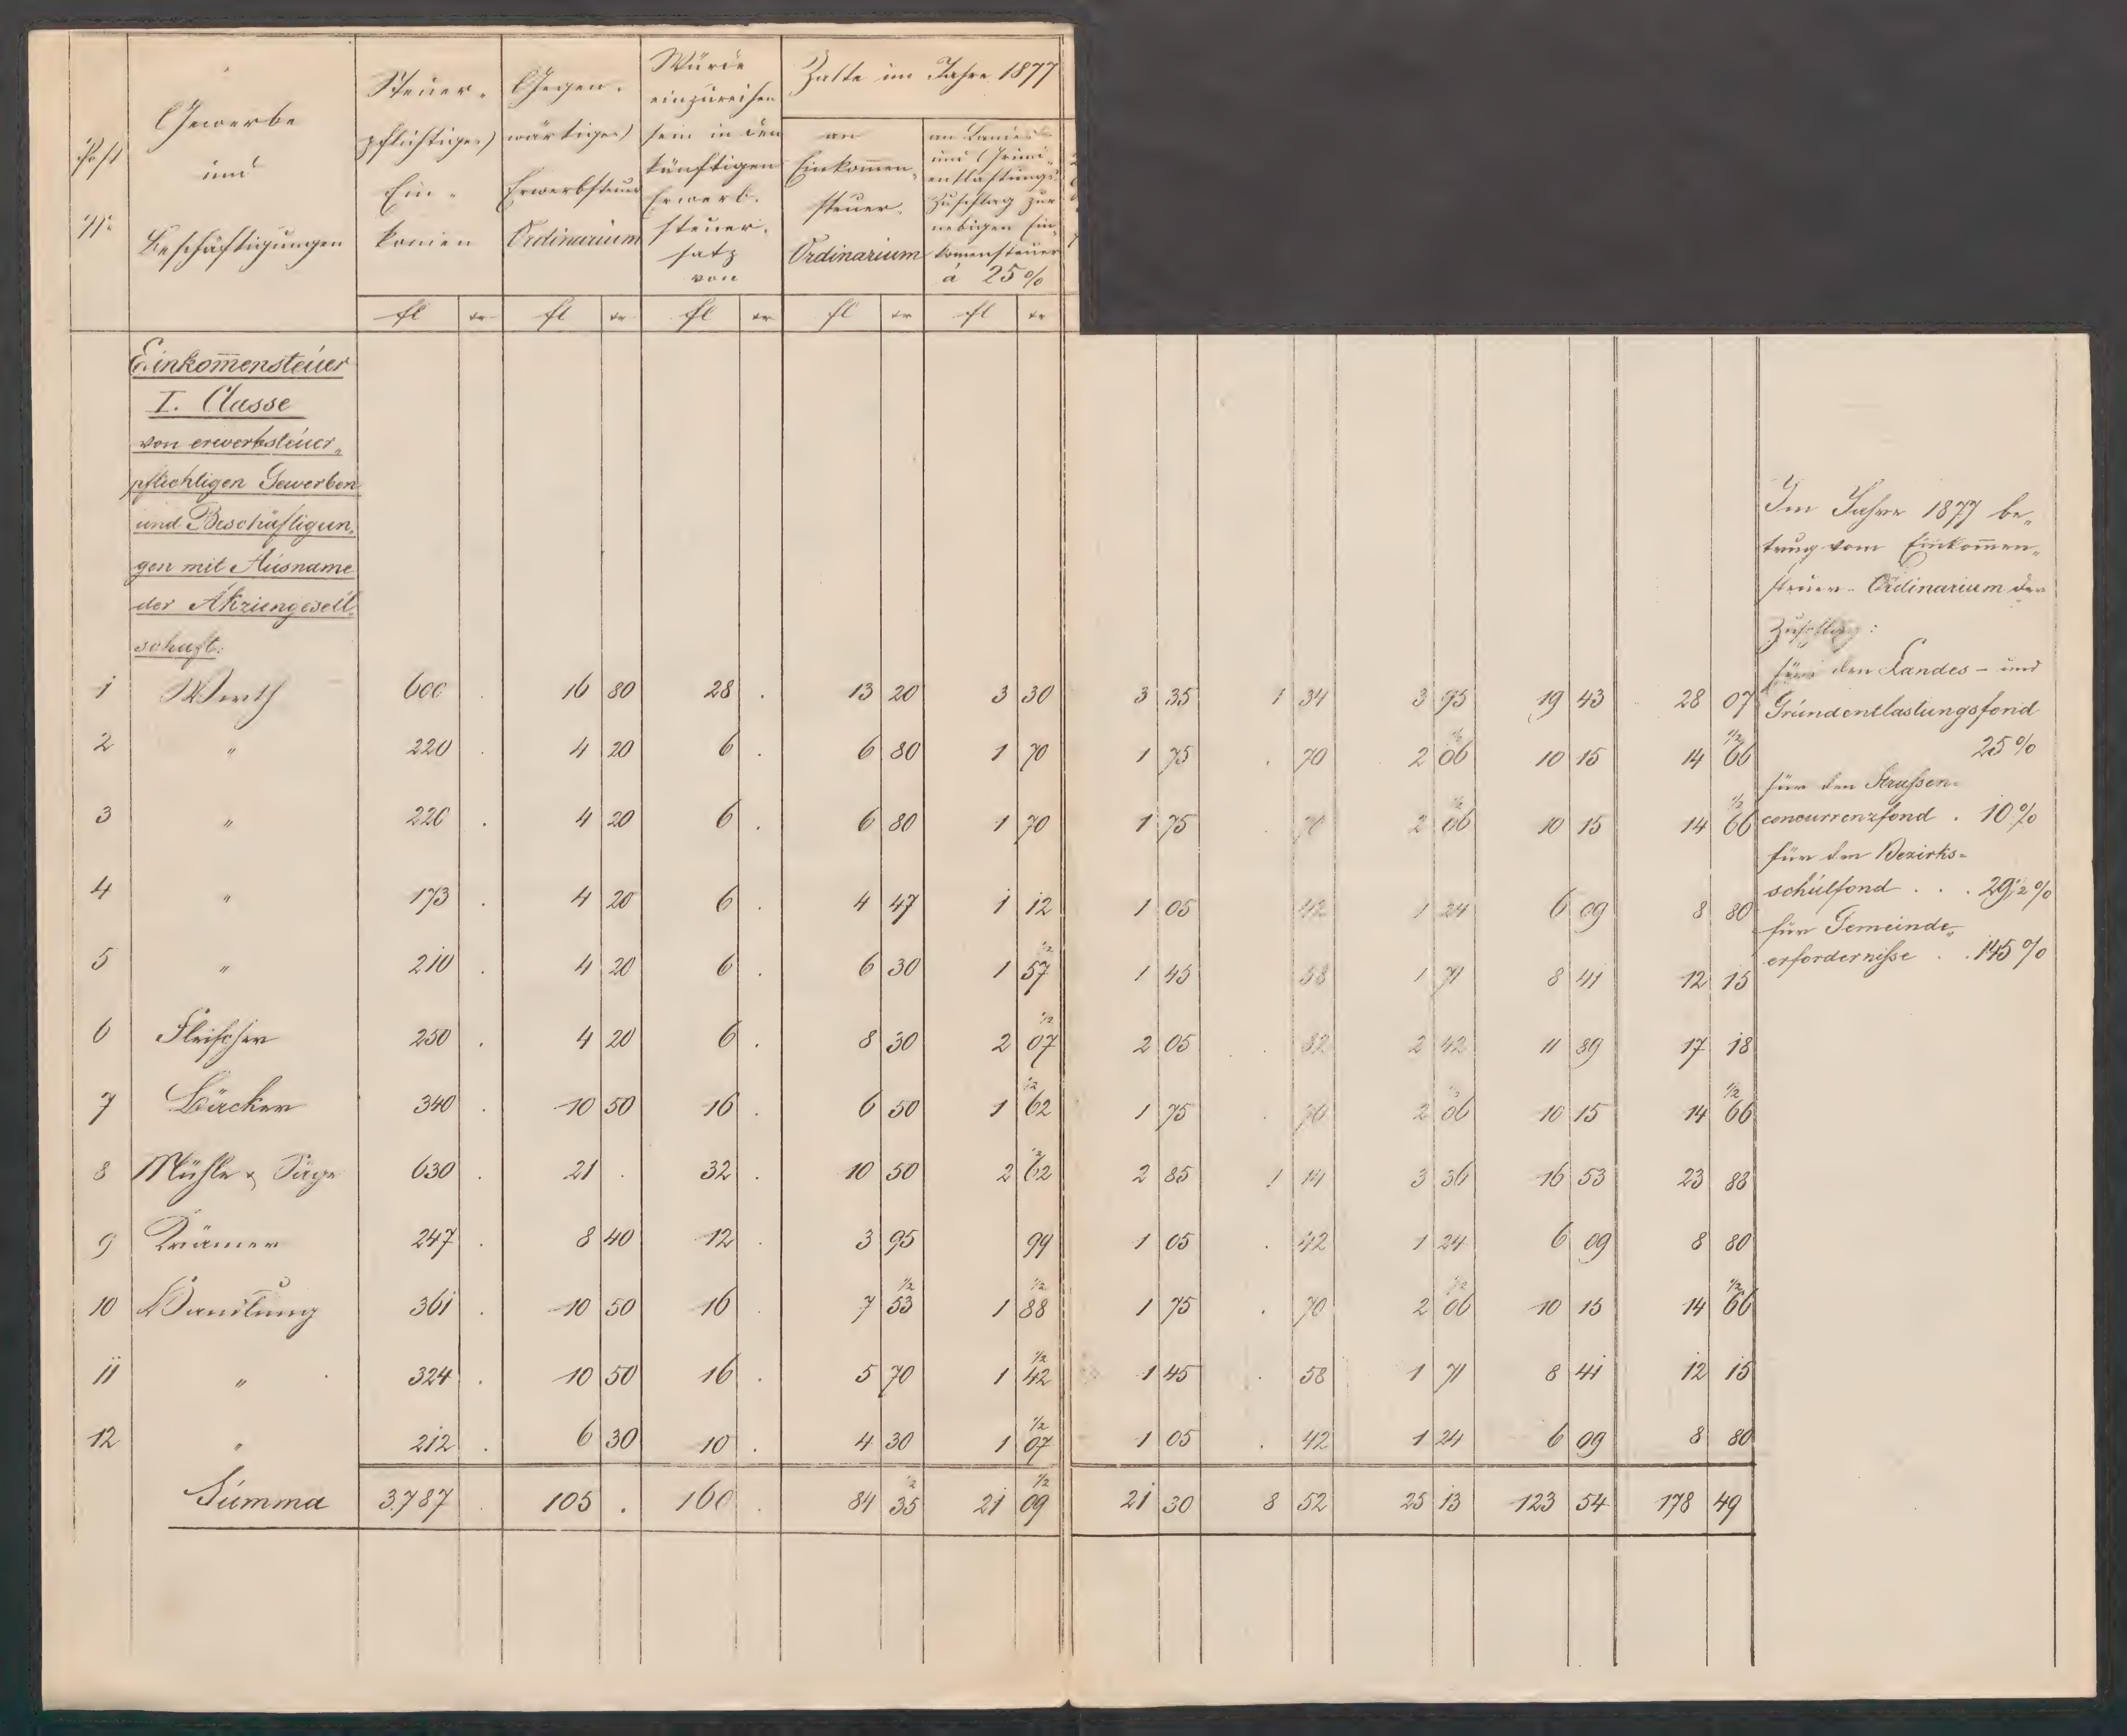 Post
Nr.
Gewerbe
und
Beschäftigungen
Steuer-
pflichtiges
Ein-
komen
Gegen-
wärtiges
Erwerbsteuer
Ordinarium
Würde
einzureihen
sein in den
künftigen
Erwerb-
steuer-
satz
von
Zalte im Jahre 1877
an
Einkom̄en-
steuer-
Ordinarium
an Landes
und Grund-
entlastungs-
Zuschlag zur
nebigen Ein-
komensteuer
á 25 %
fl kr fl kr fl kr fl kr fl kr
Einkom̄ensteuer
I. Classe
von erwerbsteuer-
pflichtigen Gewerben
und Beschäftigun-
gen mit Ausname
der Akziengesell-
schaft:
1 Wirth 600 . 16 80 28 . 13 20 3 30 3 35 1 34 3 95 19 43 28 07
2 " 220 . 4 20 6 . 6 80 1 70 1 75 . 70 2 06 1/2 10 15 14 66 1/2
3 " 220 . 4 20 6 . 6 80 1 70 1 75 70 2 06 1/2 10 15 14 66 1/2
4 " 173 . 4 20 6 . 4 47 1 12 1 05 42 1 24 6 09 8 80
5 " 210 . 4 20 6 . 6 30 1 57 1/2 1 45 58 1 71 8 41 12 15
6 Fleischer 250 . 4 20 6 . 8 30 2 07 1/2 2 05 . 82 2 42 11 89 17 18
7 Bäcker 340 . 10 50 16 . 6 50 1 62 1/2 1 75 . 70 2 06 1/2 10 15 14 66 1/2
8 Mühle & Säge 630 . 21 . 32 . 10 50 2 62 1/2 2 85 1 14 3 36 16 53 23 88
9 Krämer 247 . 8 40 12 . 3 95 99 1 05 . 42 1 24 6 09 8 80
10 Handlung 361 . 10 50 16 . 7 53 1/2 1 88 1/2 1 75 . 70 2 06 1/2 10 15 14 66 1/2
11 " 324 . 10 50 16 . 5 70 1 42 1/2 1 45 . 58 1 71 8 41 12 15
12 " 212 . 6 30 10 . 4 30 1 07 1/2 1 05 . 42 1 24 6 09 8 80
Summa 3.787 . 105 . 160 . 84 35 1/2 21 09 1/2 21 30 8 52 25 13 123 54 178 49
Im Jahre 1877 be-
trug vom Einkom̄en-
steuer-Ordinarium der
Zuschlag:
für den Landes- und
Grundentlastungsfond
25 %
für den Straßen-
concurrenzfond . 10 %
für den Bezirks-
schulfond . . . 29 1/2 %
für Gemeinde-
erfordernisse . . 145 %